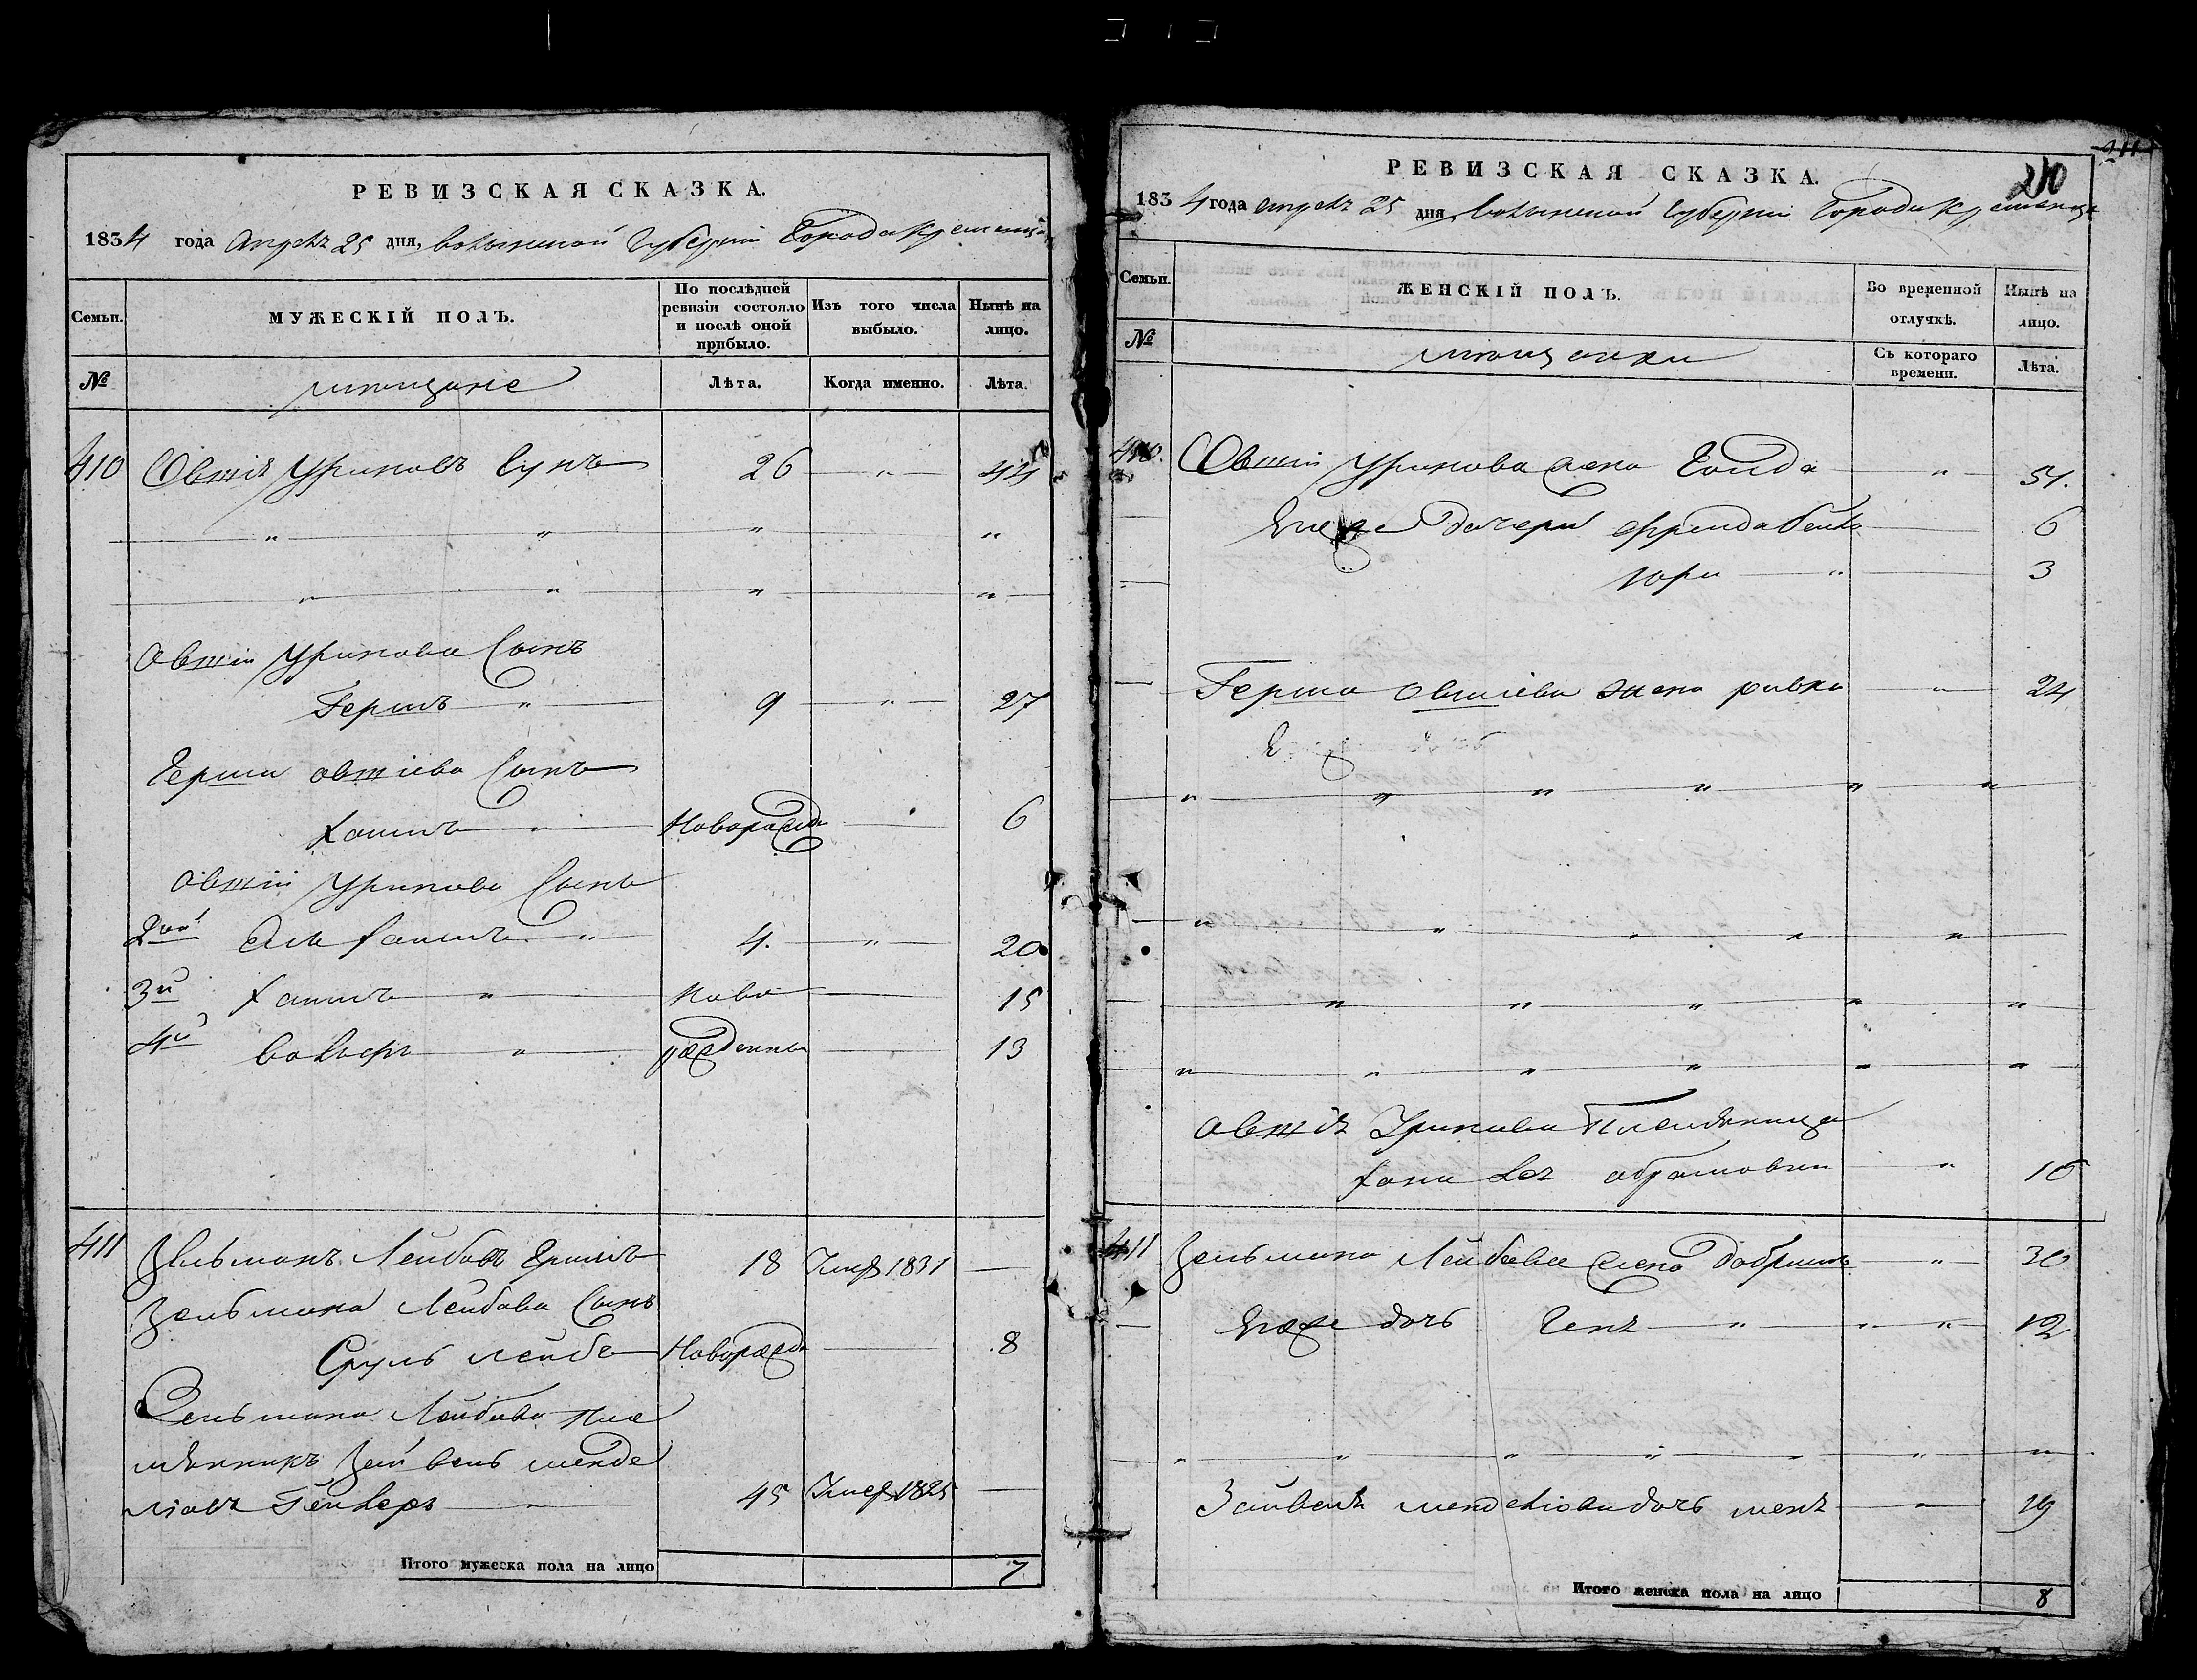 РЕВИЗСКАЯ СКАЗКА.
1834 года Апреля 25 дня, Волынской Губернии Города Кременца
Семьи.
МУЖЕСКІЙ ПОЛЪ.
По послѣдней ревизіи состояло и послѣ оной прибыло.
Изъ того числа выбыло.
Нынѣ на лицо.
№
мещане
Лѣта.
Когда именно.
Лѣта.
410 Овшія Уриновъ 26 " 44
" " " "
" " " "
Овшіи Уринова Сынъ
Гершъ " 9 " 27
Герша овшіева Сынъ
Хаимъ " Новорожд 6
Овшіи Уринова Сынъ
2ой Хаимъ " 4. " 20
3й Хаимъ " Ново 15
4й Волъфъ " рожденны 13
411 Зельманъ Лейбовъ 18 Умер 1831
Зельмана Лейбова Сынъ
Сруль лейба Новорожд 8
Зельмана Лейбова пле
мянникъ Зейвель менде
ліовъ 45 Умер 1825
Итого мужеска пола на лицо 7
211
210
РЕВИЗСКАЯ СКАЗКА.
1834 года апреля 25 дня, Волынской Губерніи Города Кременца
Семьи.
ЖЕНСКІЙ ПОЛЪ.
Во временной отлучкѣ.
Нынѣ на лицо.
№
мещанки
Съ котораго времени.
Лѣта.
410. Овшіи Уринова жена Голда " 51.
Его же дочери фрейда бейла 6
" 3
Герша овшіева жена ривка " 24
" " " " " "
" " " " "
" " " " "
" " " " " "
Овшія Уринова Племяница
абрамовна " 16
411 Зельмана Лейбова жена добришъ " 30
Его же дочь Геня " " " 12
" " " " " " "
Зайвеля менделіова дочь меня " 19
Итого женска пола на лицо 8